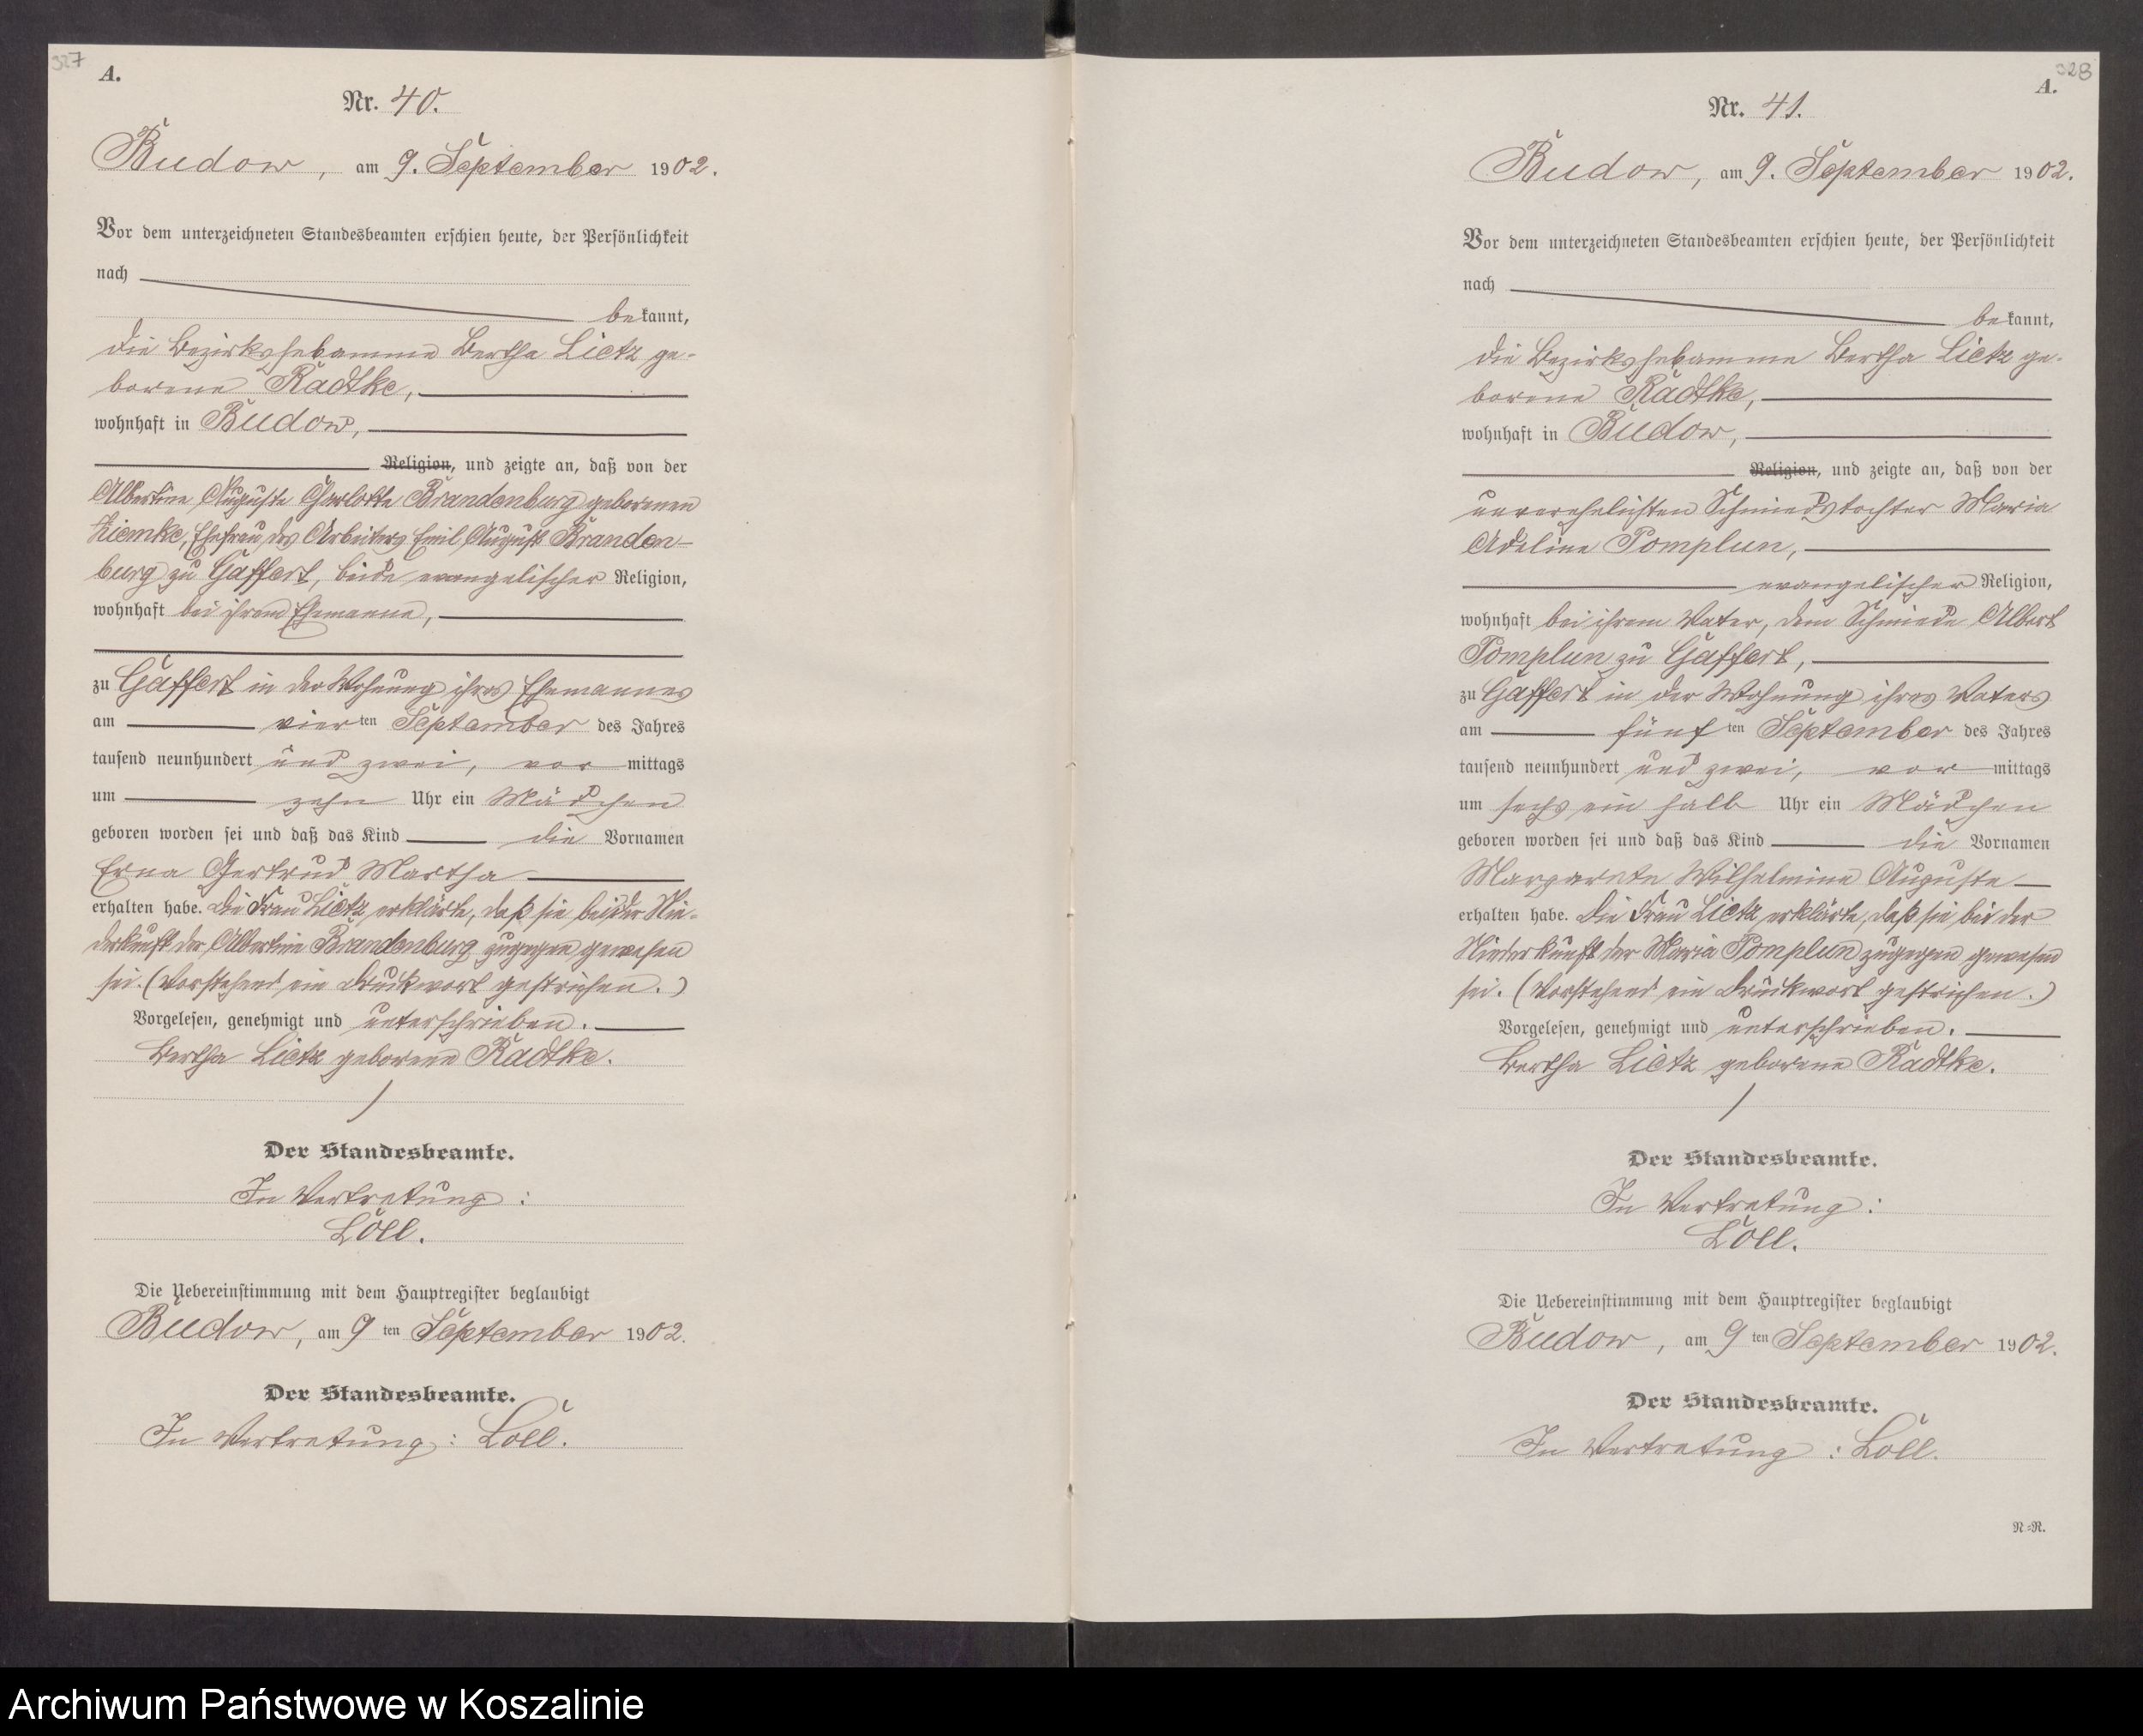 327
A.
Nr. 40.
Budow, am 9. September 1902.
Vor dem unterzeichneten Standesbeamten erschien heute, der Persönlichkeit
nach
bekannt,
die Bezirkshebamme Bertha Lietz ge-
borene Radtke,
wohnhaft in Budow,
Religion, und zeigte an, daß von der
Albertine Auguste Charlotte Brandenburg geborenen
Ziemke, Ehefrau des Arbeiters Emil August Branden-
burg zu Gaffert, beide evangelischer Religion,
wohnhaft bei ihrem Ehemanne,
zu Gaffert in der Wohnung ihres Ehemannes
am vierten September des Jahres
tausend neunhundert und zwei, vormittags
um zehn Uhr ein Mädchen
geboren worden sei und daß das Kind die Vornamen
Erna Gertrud Martha
erhalten habe. Die Frau Lietz erklärte, daß sie bei der Nie-
derkunft der Albertine Brandenburg zugegen gewesen
sei. (Vorstehend ein Druckwort gestrichen.)
Vorgelesen, genehmigt und unterschrieben.
Bertha Lietz geborene Radtke.
Der Standesbeamte.
In Vertretung:
Loll.
Die Uebereinstimmung mit dem Hauptregister beglaubigt
Budow, am 9ten September 1902.
Der Standesbeamte.
In Vertretung: Loll.
328
A.
Nr. 41.
Budow, am 9. September 1902.
Vor dem unterzeichneten Standesbeamten erschien heute, der Persönlichkeit
nach
bekannt,
die Bezirkshebamme Bertha Lietz ge-
borene Radtke,
wohnhaft in Budow,
Religion, und zeigte an, daß von der
unverehelichten Schmiedstochter Maria
Adeline Pomplun,
evangelischer Religion,
wohnhaft bei ihrem Vater, dem Schmiede Albert
Pomplun zu Gaffert,
zu Gaffert in der Wohnung ihres Vaters
am fünften September des Jahres
tausend neunhundert und zwei, vormittags
um sechs ein halb Uhr ein Mädchen
geboren worden sei und daß das Kind die Vornamen
Margarete Wilhelmine Auguste
erhalten habe. Die Frau Lietz erklärte, daß sie bei der
Niederkunft der Maria Pomplun zugegen gewesen
sei. (Vorstehend ein Druckwort gestrichen.)
Vorgelesen, genehmigt und unterschrieben.
Bertha Lietz geborene Radtke.
Der Standesbeamte.
In Vertretung:
Loll.
Die Uebereinstimmung mit dem Hauptregister beglaubigt
Budow, am 9ten September 1902.
Der Standesbeamte.
In Vertretung: Loll.
N=N.
Archiwum Państwowe w Koszalinie